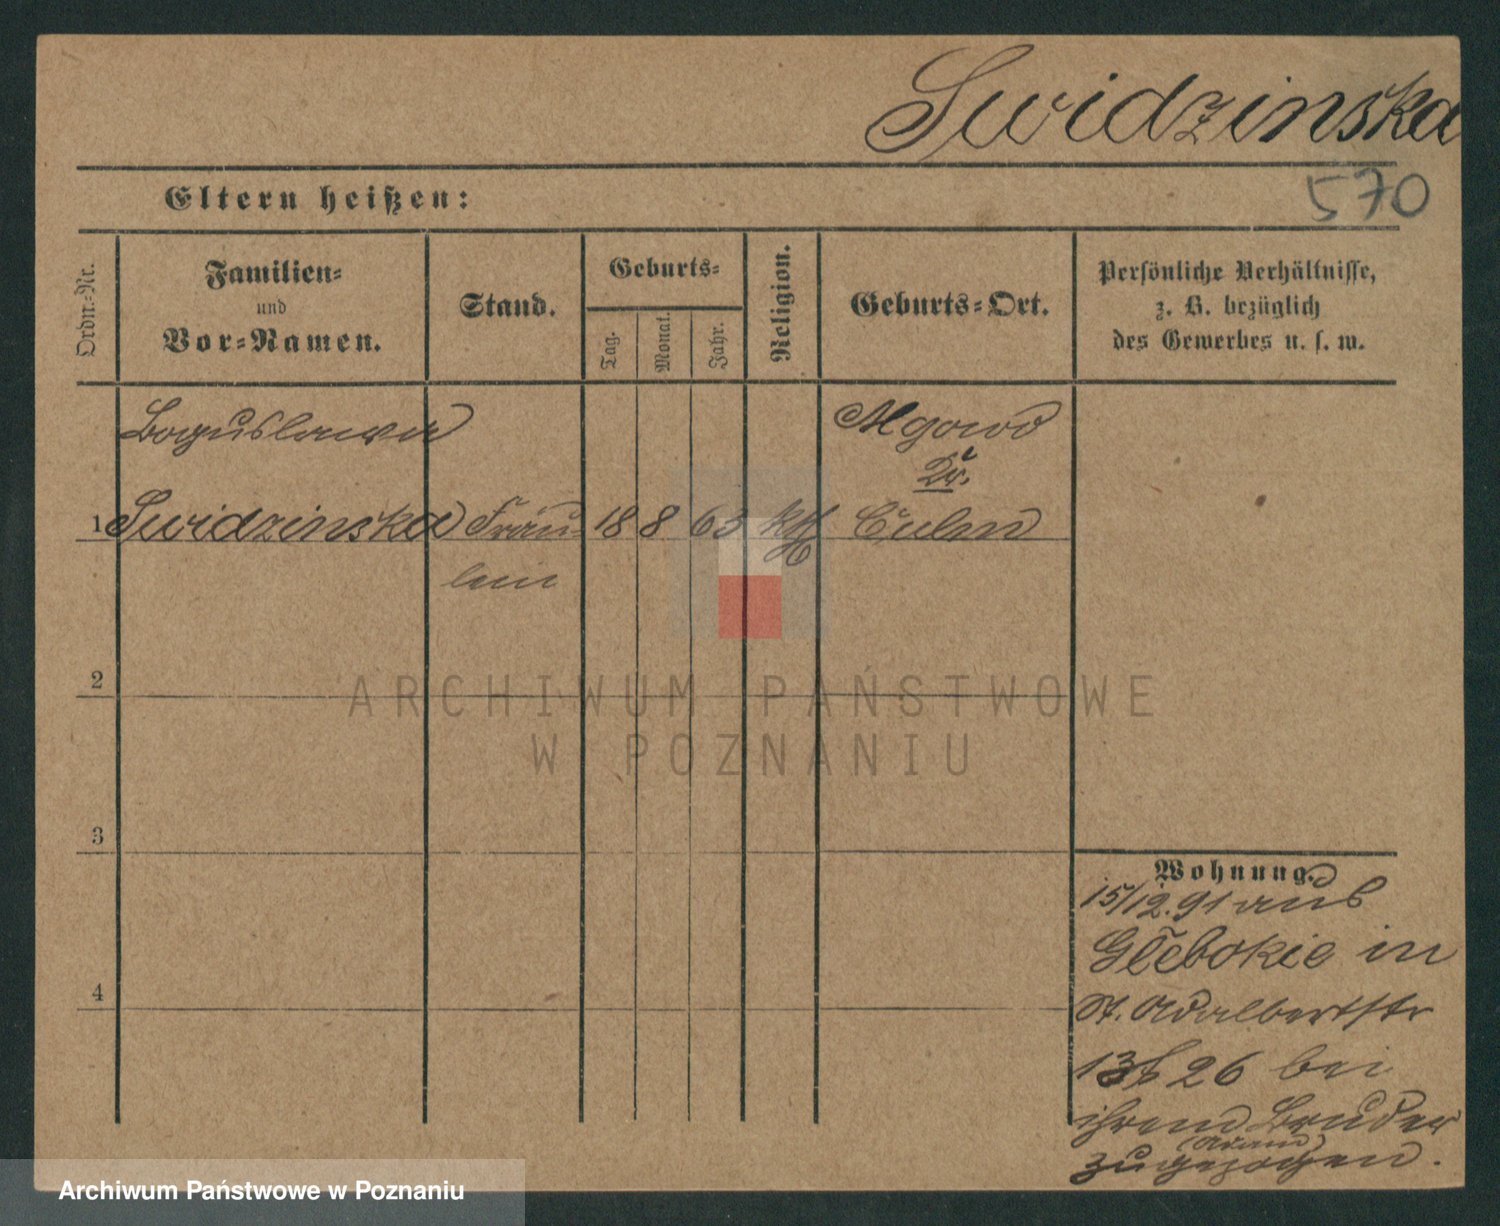 Swidzinska
570
Eltern heißen:
Ordn.-Nr.
Familien-
und
Vor-Namen.
Stand.
Geburts-
Tag.
Monat.
Jahr.
Religion.
Geburts-Ort.
Persönliche Verhältnisse,
z. B. bezüglich
des Gewerbes u. s. w.
Boguslawa
Mgowo
Kr.
1 Swidzinska Fräu- 18 8 63 kth Culm
lein
2
ARCHIWUM PAŃSTWOWE
W POZNANIU
3
Wohnung.
15/12.91 aus
Głębokie in
St. Adalbertstr
26 bei
ihrem Bruder
(Adam)
zugezogen.
4
Archiwum Państwowe w Poznaniu